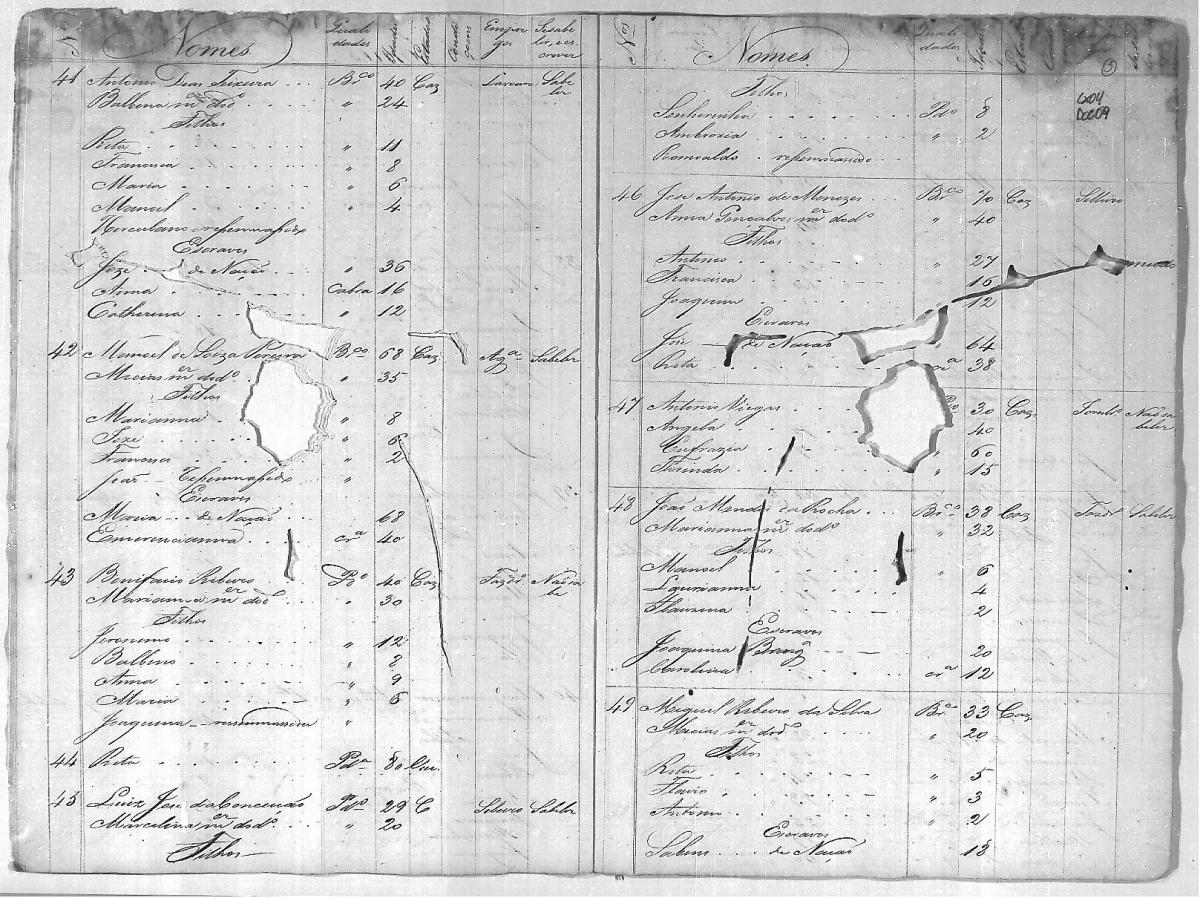 Nos Nomes Quali dades Idades Estados Condi coens Empre gos Sesabe ler, e es crever
41 Antonio Dias Teixeira Brco 40 Caz Lavour Sabe ler
Balbina mer dodo " 24
Filhos
Rita " 11
Francisca " 8
Maria " 6
Manoel " 4
Herculano
Escravos
Joze de Nação " 36
Anna Cabra 16
Catherina " 12
42 Manoel de Souza Pereira Brco 68 Caz Aga Sabeler
Mecias mer dodo " 35
Filhos
Marianna " 8
Joze " 6
Francisco " 2
João "
Escravos
Maria de Nação 68
Emerencianna cra 40
43 Bonifacio Ribeiro Pdo 40 Caz Fazdr Naõ sa be
Marianna mer dodo " 30
Filhos
Jeronimo " 12
Balbino " 8
Anna " 9
Maria " 6
Joaquina "
44 Rita Pda 80
45 Luiz Jose da Conceicão Pdo 29 C Seleiro Sabeler
Marcelina mer dodo " 20
Filhos
Nos Nomes Quali dades
5
Cx04
Doc09
Filhos
Senhorinha Pdo 8
Ambrozia " 2
Romvaldo
46 Joze Antonio de Menezes Brco 70 Caz Selleiro
Anna Gonçalves mer dodo " 40
Filhos
Antonio " 27
Francisca " 16
Joaquim 12
Escravos
Joze de Nação " 64
Rita cra 38
47 Antonio Viegas 30 Caz Naõ sa beler
Angela 40
Eufrazia " 60
15
48 João Mendes da Rocha Brco 38 Caz Fazdr Sabeler
Marianna mer dodo " 32
Filhos
Manoel " 6
Laurianna " 4
Flauzina " 2
Escravos
Joaquina Bang 20
Carolina cra 12
49 Miguel Ribeiro da Silva Brco 33 Caz
Mecias mer dodo " 20
Filhos
Rita " 5
Flavio " 3
Antonio " 2
Escravos
Sabino de Nação 18